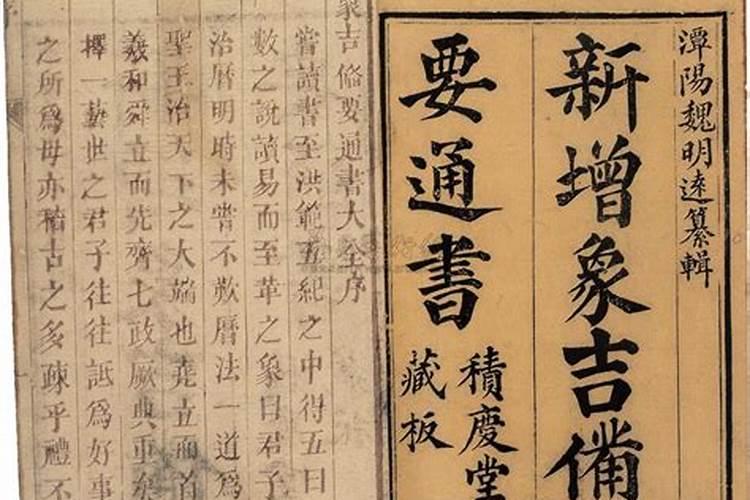 潭陽魏明遠纂輯
新增象吉備
要通書
積慶堂
藏板
象吉俻要通書大全序
嘗讀書至洪範五紀之中得五曰
數之說讀易而至革之象曰君子
治曆明時未嘗不歎曆法一道爲
聖王治天下之大端也堯立而首
羲和舜立而先齊七政厥典重矣
擇一藝世之君子往往詆爲好事
之所爲毋亦稽古之多疎乎禮不